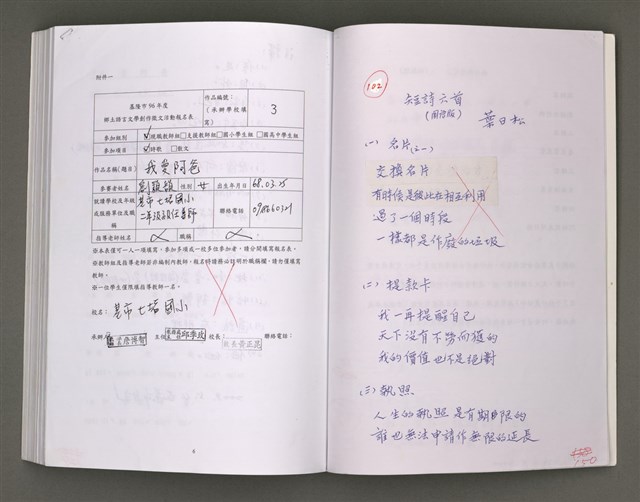 附件一
基隆市 96 年度
鄉土語言文學創作徵文活動報名表
作品編號：
（承辦學校填寫）
3
參加組別
現職教師組□支援教師組□國小學生組 □國高中學生組
參加項目
詩歌 □散文
作品名稱(題目)
我愛阿爸
參賽者姓名
性別
女
出生年月日
68.03.25
就讀學校及年級或服務單位及職稱
基市七堵國小
二年級級任老師
聯絡電話
指導老師姓名
職稱
※本表僅可一人一項填寫，參加多項或一校多位參加者，請分開填寫報名表。
※教師組及指導老師若非編制內教師，報名時請務必註明於職稱欄，請勿僅填寫教師。
※一位學生僅限填指導教師一名。
校名：基市七堵國小
承辦
主任
校長：
聯絡電話：
102
短詩六首
(國語版)
葉日松
(一) 名片(之一)
交換名片
有時候是彼此在相互利用
過了一個時段
一樣都是作廢的垃圾
(二) 提款卡
我一再提醒自己
天下沒有不勞而穫的
我的價值也不是絕對
(三) 執照
人生的執照是有期限的
誰也無法申請作無限的延長
150